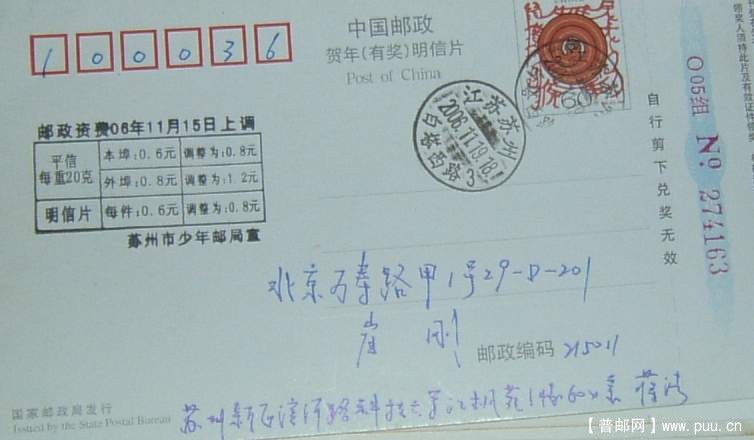 100036
中国邮政
贺年(有奖)明信片
Post of China
60
江苏苏州
2006.11.19.18
白塔西路
3
邮政资费06年11月15日上调
平信
每重20克
本埠:0.6元 调整为:0.8元
外埠:0.8元 调整为:1.2元
明信片 每件:0.6元 调整为:0.8元
苏州市少年邮局宣
自行剪下兑奖无效
005组 No. 274163
北京万寿路甲1号29-D-201
崔刚
邮政编码 215011
国家邮政局发行
Issued by the State Postal Bureau
苏州新区滨河路
【普邮网】www.puu.cn